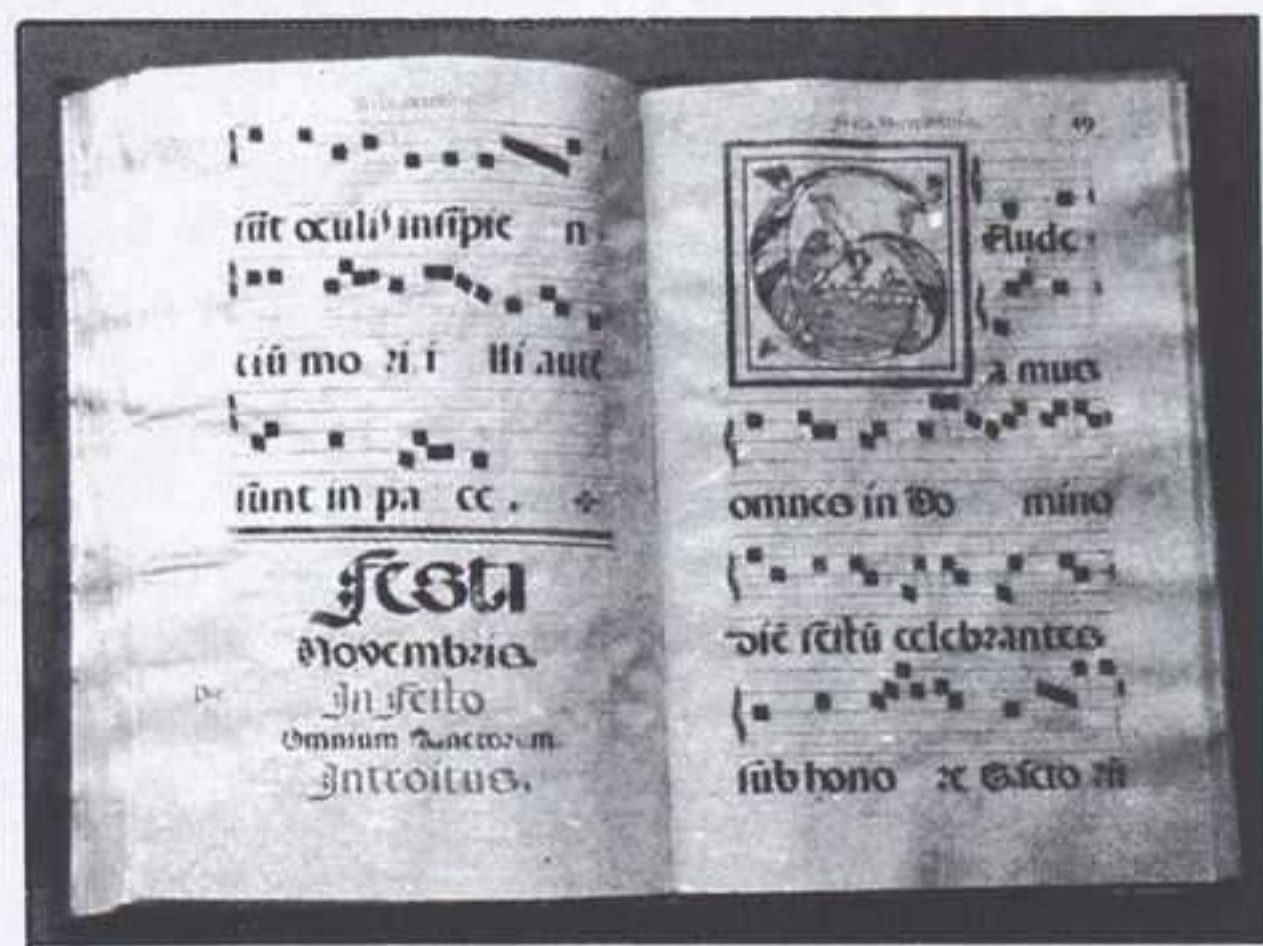 sūt oculis insipie n
ciū mo ri i lli autē
sūnt in pa ce .
Festa
Novembris.
In festo
Omnium Sanctorum.
Introitus.
49
Aude
a mus
omnes in Do mino
diē festū celebrantes
sub hono re